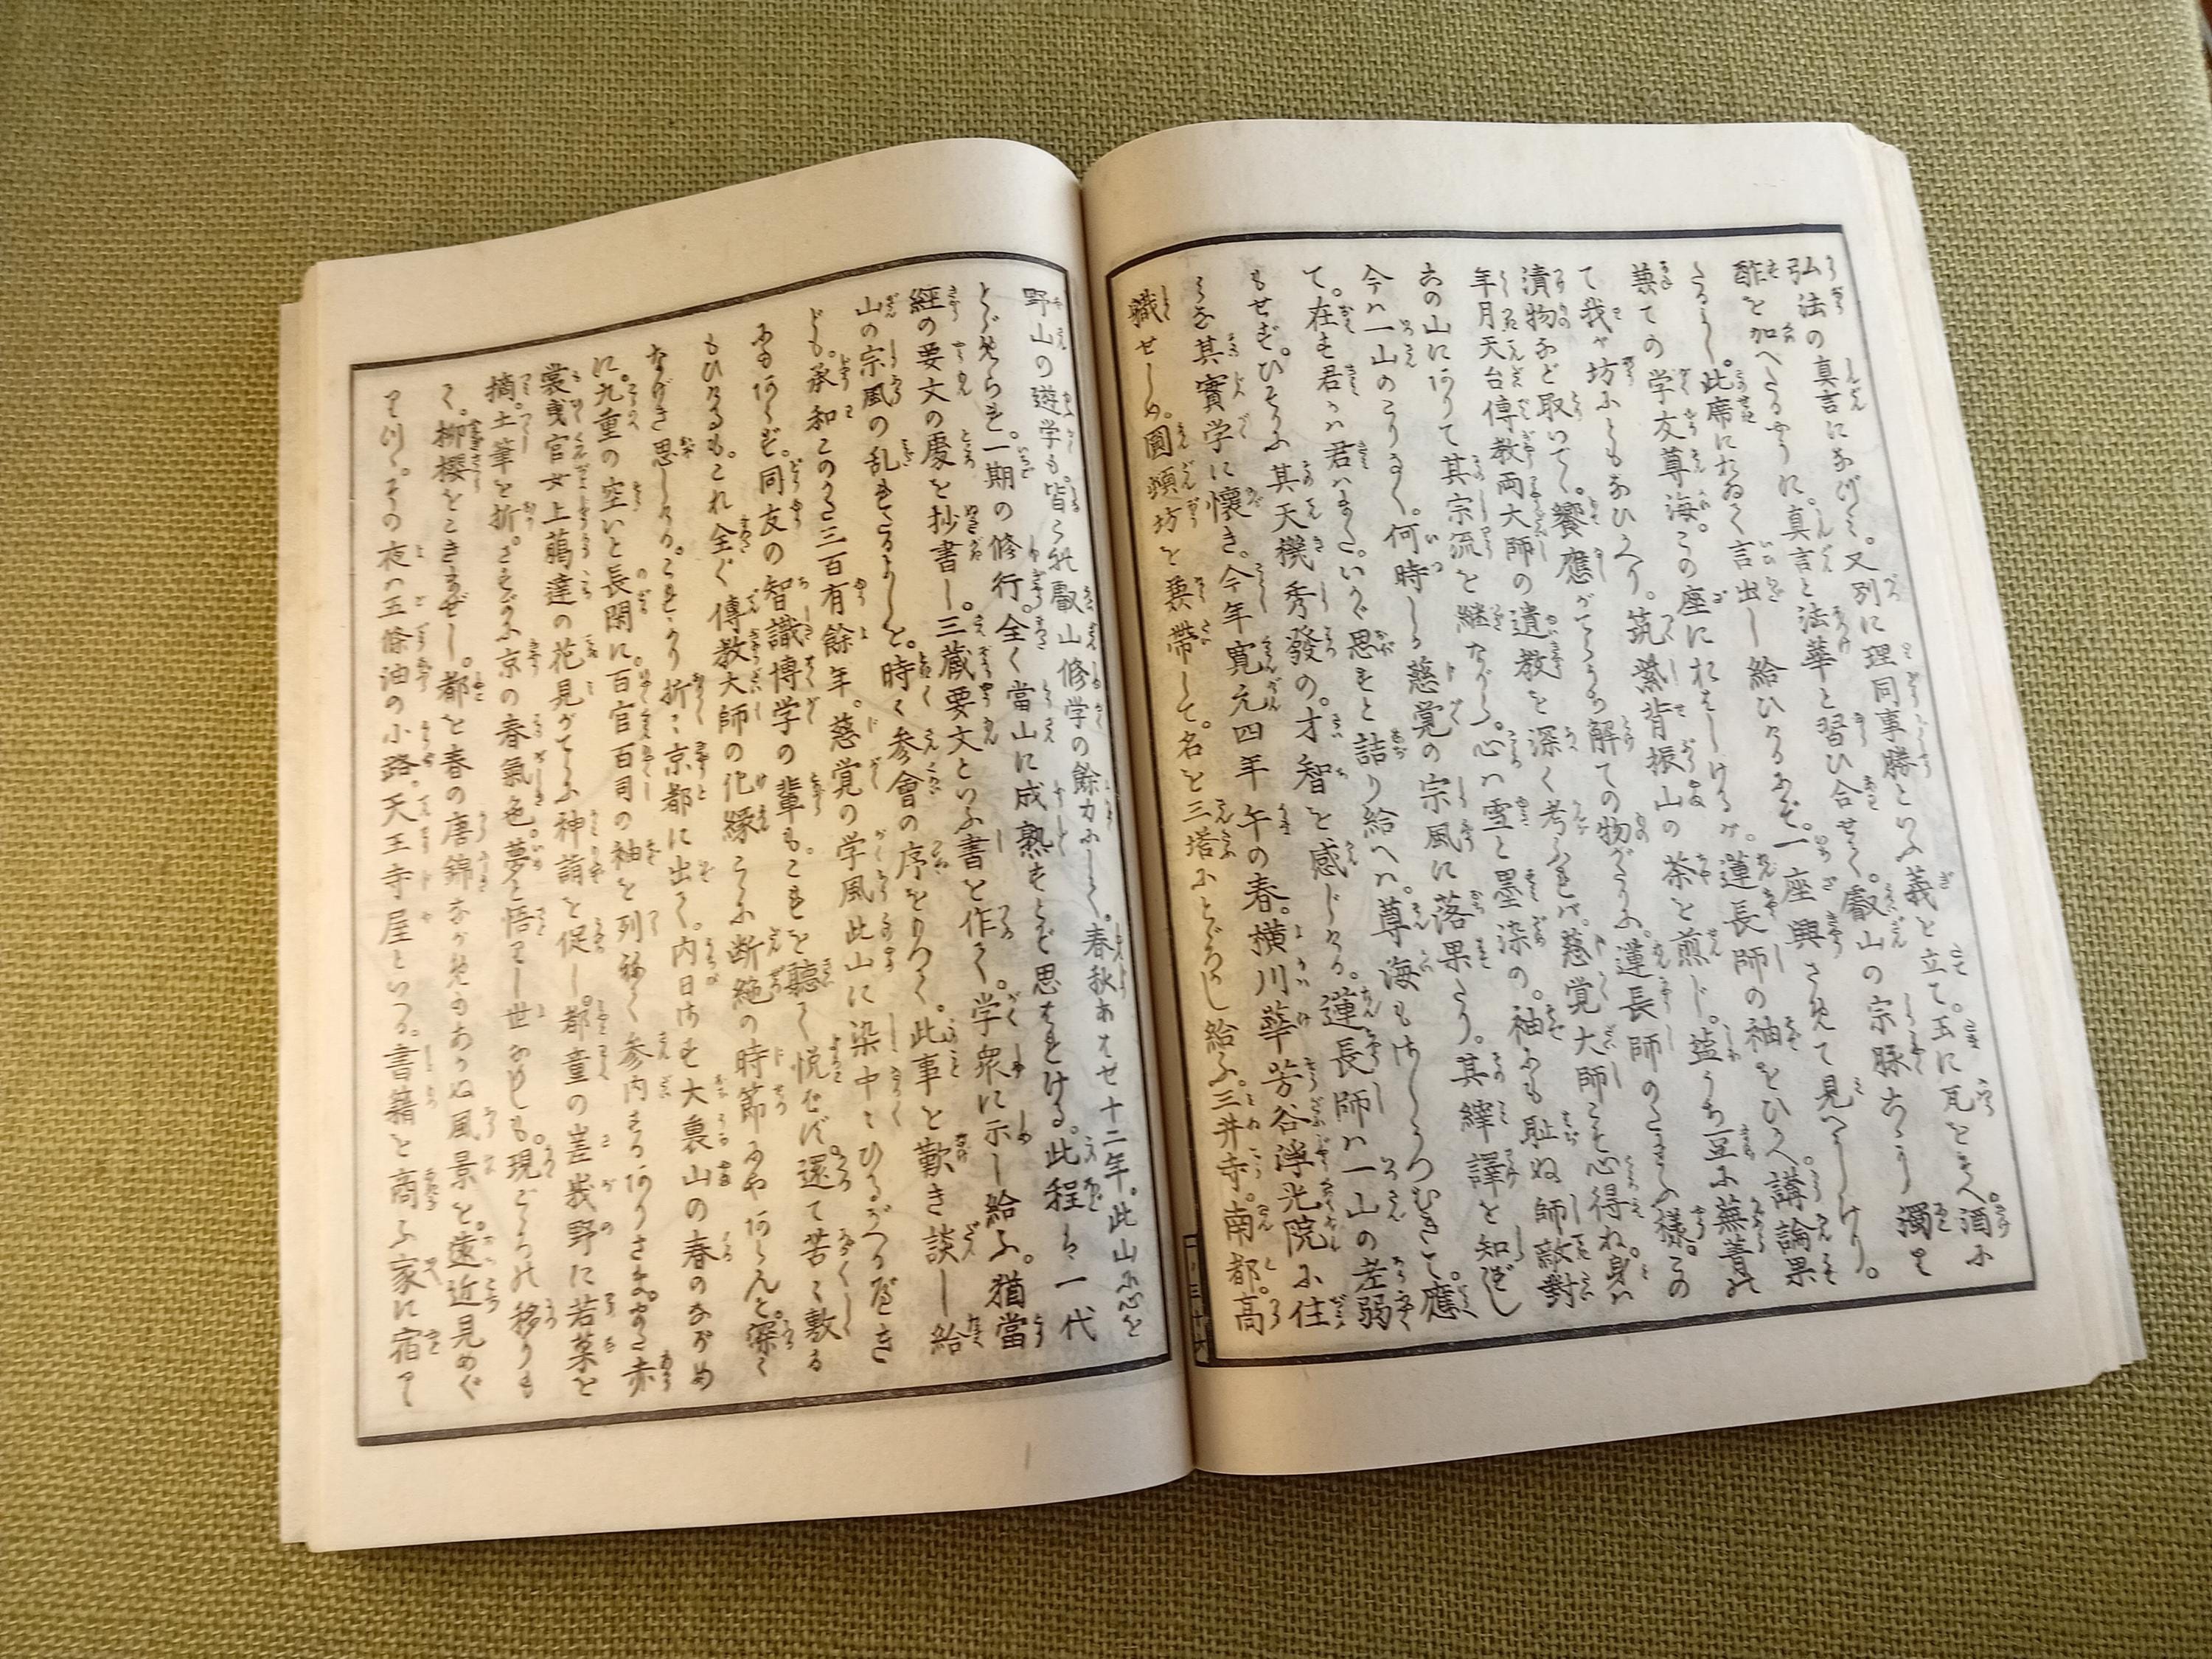 弘法の真言になづみ。又別に理同事勝といふ義を立て。玉に瓦をまじへ酒に
酢を加へたるやうに。真言と法華と習ひ合せて。叡山の宗脉も濁り
たるよし。此席において言出し給ひ。一座興さめて見へしけり。
兼ての学友尊海。この座におはしけるが。蓮長師の袖をひかへ。講論果
て我が坊にともなひかへり。筑紫背振山の茶を煎じ。塩うち豆に蕪菁の
漬物など取いで。饗應がてら解ての物がたりに。蓮長師のたまふ様。この
年月天台傳教両大師の遺教を深く考ふれば。慈覚大師こそ心得ね。身は
六の山にありて其宗流を継ながら。心は雪と墨染の。袖にも耻ぬ師敵對
今ハ一山のこりなく。何時しか慈覚の宗風に落果たり。其繹を知ずし
て。在す君か君ハまた。いかゞ思すと詰り給へハ。尊海もはしうつむきて。應
もせず。ひそかに其天機秀發の。才智を感じける。蓮長師ハ一山の老弱
其實学に懐き。今年寛元四年午の春。横川華芳谷浄光院に住
職せしめ。圓頓坊を兼帯して。名を三塔にとゞろかし給ふ。三井寺。南都。高
一ノ三十六
野山の遊学も。皆これ叡山修学の餘力にして。春秋あはせ十二年。此山に心を
とゞめらる。一期の修行。全く當山に成熟すとぞ思はれける。此程も一代
経の要文の處を抄書し。三蔵要文といふ書を作て。学衆に示し給ふ。猶當
山の宗風の乱れたるよしを。時〻参會の序をもつて。此事を歎き談し給
ども。承和このかた三百有餘年。慈覚の学風此山に染中〻ひるがへるべき
にもあらず。同友の智識博学の輩もこれを聴て悦ばず。還て苦〻敷
もひなるも。これ全く傳教大師の化縁こゝに断絶の時節にやあらんと。深く
なげき思しける。これより折〻京都に出て。内日さす大裏山の春のながめ
に。九重の空いと長閑に。百官百司の袖を列ねて参内するありさま。
裳曳官女上臈達の花見がてらに神詣を促し。都童の嵯峨野に若菜を
摘。土筆を折。さすがに京の春氣色。夢と悟りし世なれども。現ごゝろの移りも
て。柳櫻をこきまぜし。都を春の唐錦ながめもあかぬ風景を。遠近見めぐ
りつゝ。その夜ハ五條油の小路。天王寺屋といへる。書籍を商ふ家に宿て